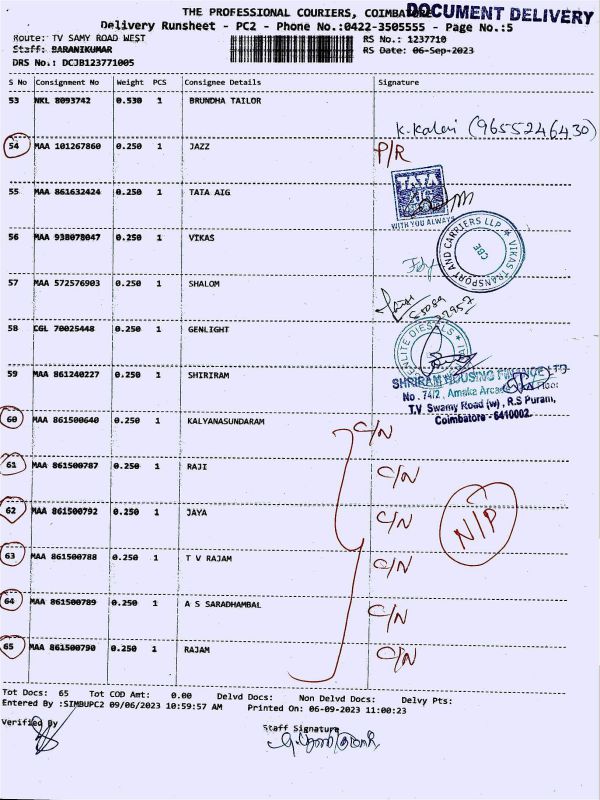 THE PROFESSIONAL COURIERS, COIMBATORE
DOCUMENT DELIVERY
Delivery Runsheet - PC2 - Phone No.:0422-3505555 - Page No.:5
Route: TV SAMY ROAD WEST
RS No.: 1237710
Staff: BARANIKUMAR
RS Date: 06-Sep-2023
DRS No.: DCJB123771005
S No Consignment No Weight PCS Consignee Details Signature
53 NKL 8093742 0.530 1 BRUNDHA TAILOR
K. Kaleri (9655246430)
54 MAA 101267860 0.250 1 JAZZ P/R
55 MAA 861632424 0.250 1 TATA AIG
TATA
AIG
WITH YOU ALWAYS
56 MAA 938078047 0.250 1 VIKAS
VIKAS TRANSPORT AND CARRIERS LLP
CBE
57 MAA 572576903 0.250 1 SHALOM
58 CGL 70025448 0.250 1 GENLIGHT
59 MAA 861240227 0.250 1 SHIRIRAM
SHRIRAM HOUSING FINANCE LTD
No. 74/2, Amaka Arcade, Floor
T.V. Swamy Road (w), R.S Puram,
Coimbatore - 6410002.
60 MAA 861500640 0.250 1 KALYANASUNDARAM C/N
61 MAA 861500787 0.250 1 RAJI C/N
62 MAA 861500792 0.250 1 JAYA C/N
N/P
63 MAA 861500788 0.250 1 T V RAJAM C/N
64 MAA 861500789 0.250 1 A S SARADHAMBAL C/N
65 MAA 861500790 0.250 1 RAJAM C/N
Tot Docs: 65 Tot COD Amt: 0.00 Delvd Docs: Non Delvd Docs: Delvy Pts:
Entered By :SIMBUPC2 09/06/2023 10:59:57 AM Printed On: 06-09-2023 11:00:23
Verified By
Staff Signature